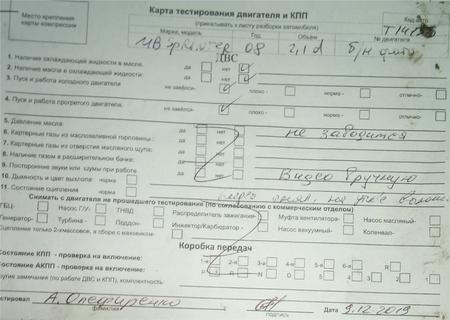 Место крепления
карты компрессии
Карта тестирования двигателя и КПП
(прикатывать к листу разборки автомобиля)
Код авто
Марка, модель
Год
Объём
№ двигателя
08
ДВС
1. Наличие охлаждающей жидкости в масле: да нет
2. Наличие масла в охлаждающей жидкости: да нет
3. Пуск и работа холодного двигателя: не завёлся- плохо - норма - отлично-
4. Пуск и работа прогретого двигателя: не завёлся- плохо - норма - отлично-
5. Давление масла: да нет
6. Картерные газы из маслозаливной горловины : да нет
7. Картерные газы из отверстия масляного щупа: да нет
8. Наличие газов в расширительном бачке: да нет
9. Посторонние звуки или шумы при работе да нет
10. Дымность и цвет выхлопа: норма
11. Состояние сцепления норма
не заводится
Видео вручную
Снимать с двигателя не прошедшего тестирования (по согласованию с коммерческим отделом)
ГБЦ- Насос Г/У- ТНВД Распределитель зажигания- Муфта вентилятора- Насос масляный-
Генератор- Турбина - Поддон- Инжектор/Карбюратор - Насос вакуумный- Коленвал-
Сцепление только 2-х массовое, в сборе с маховиком-
Коробка передач
Состояние КПП - проверка на включение: 1-я 2-я 3-я 4-я 5-я 6-я R
Состояние АКПП - проверка на включение: P R N D 5 4 3 2 1
Другие замечания (по работе ДВС и КПП), комплектация):
тестировал А. Олефиренко Дата 9.12.2019
фамилия подпись